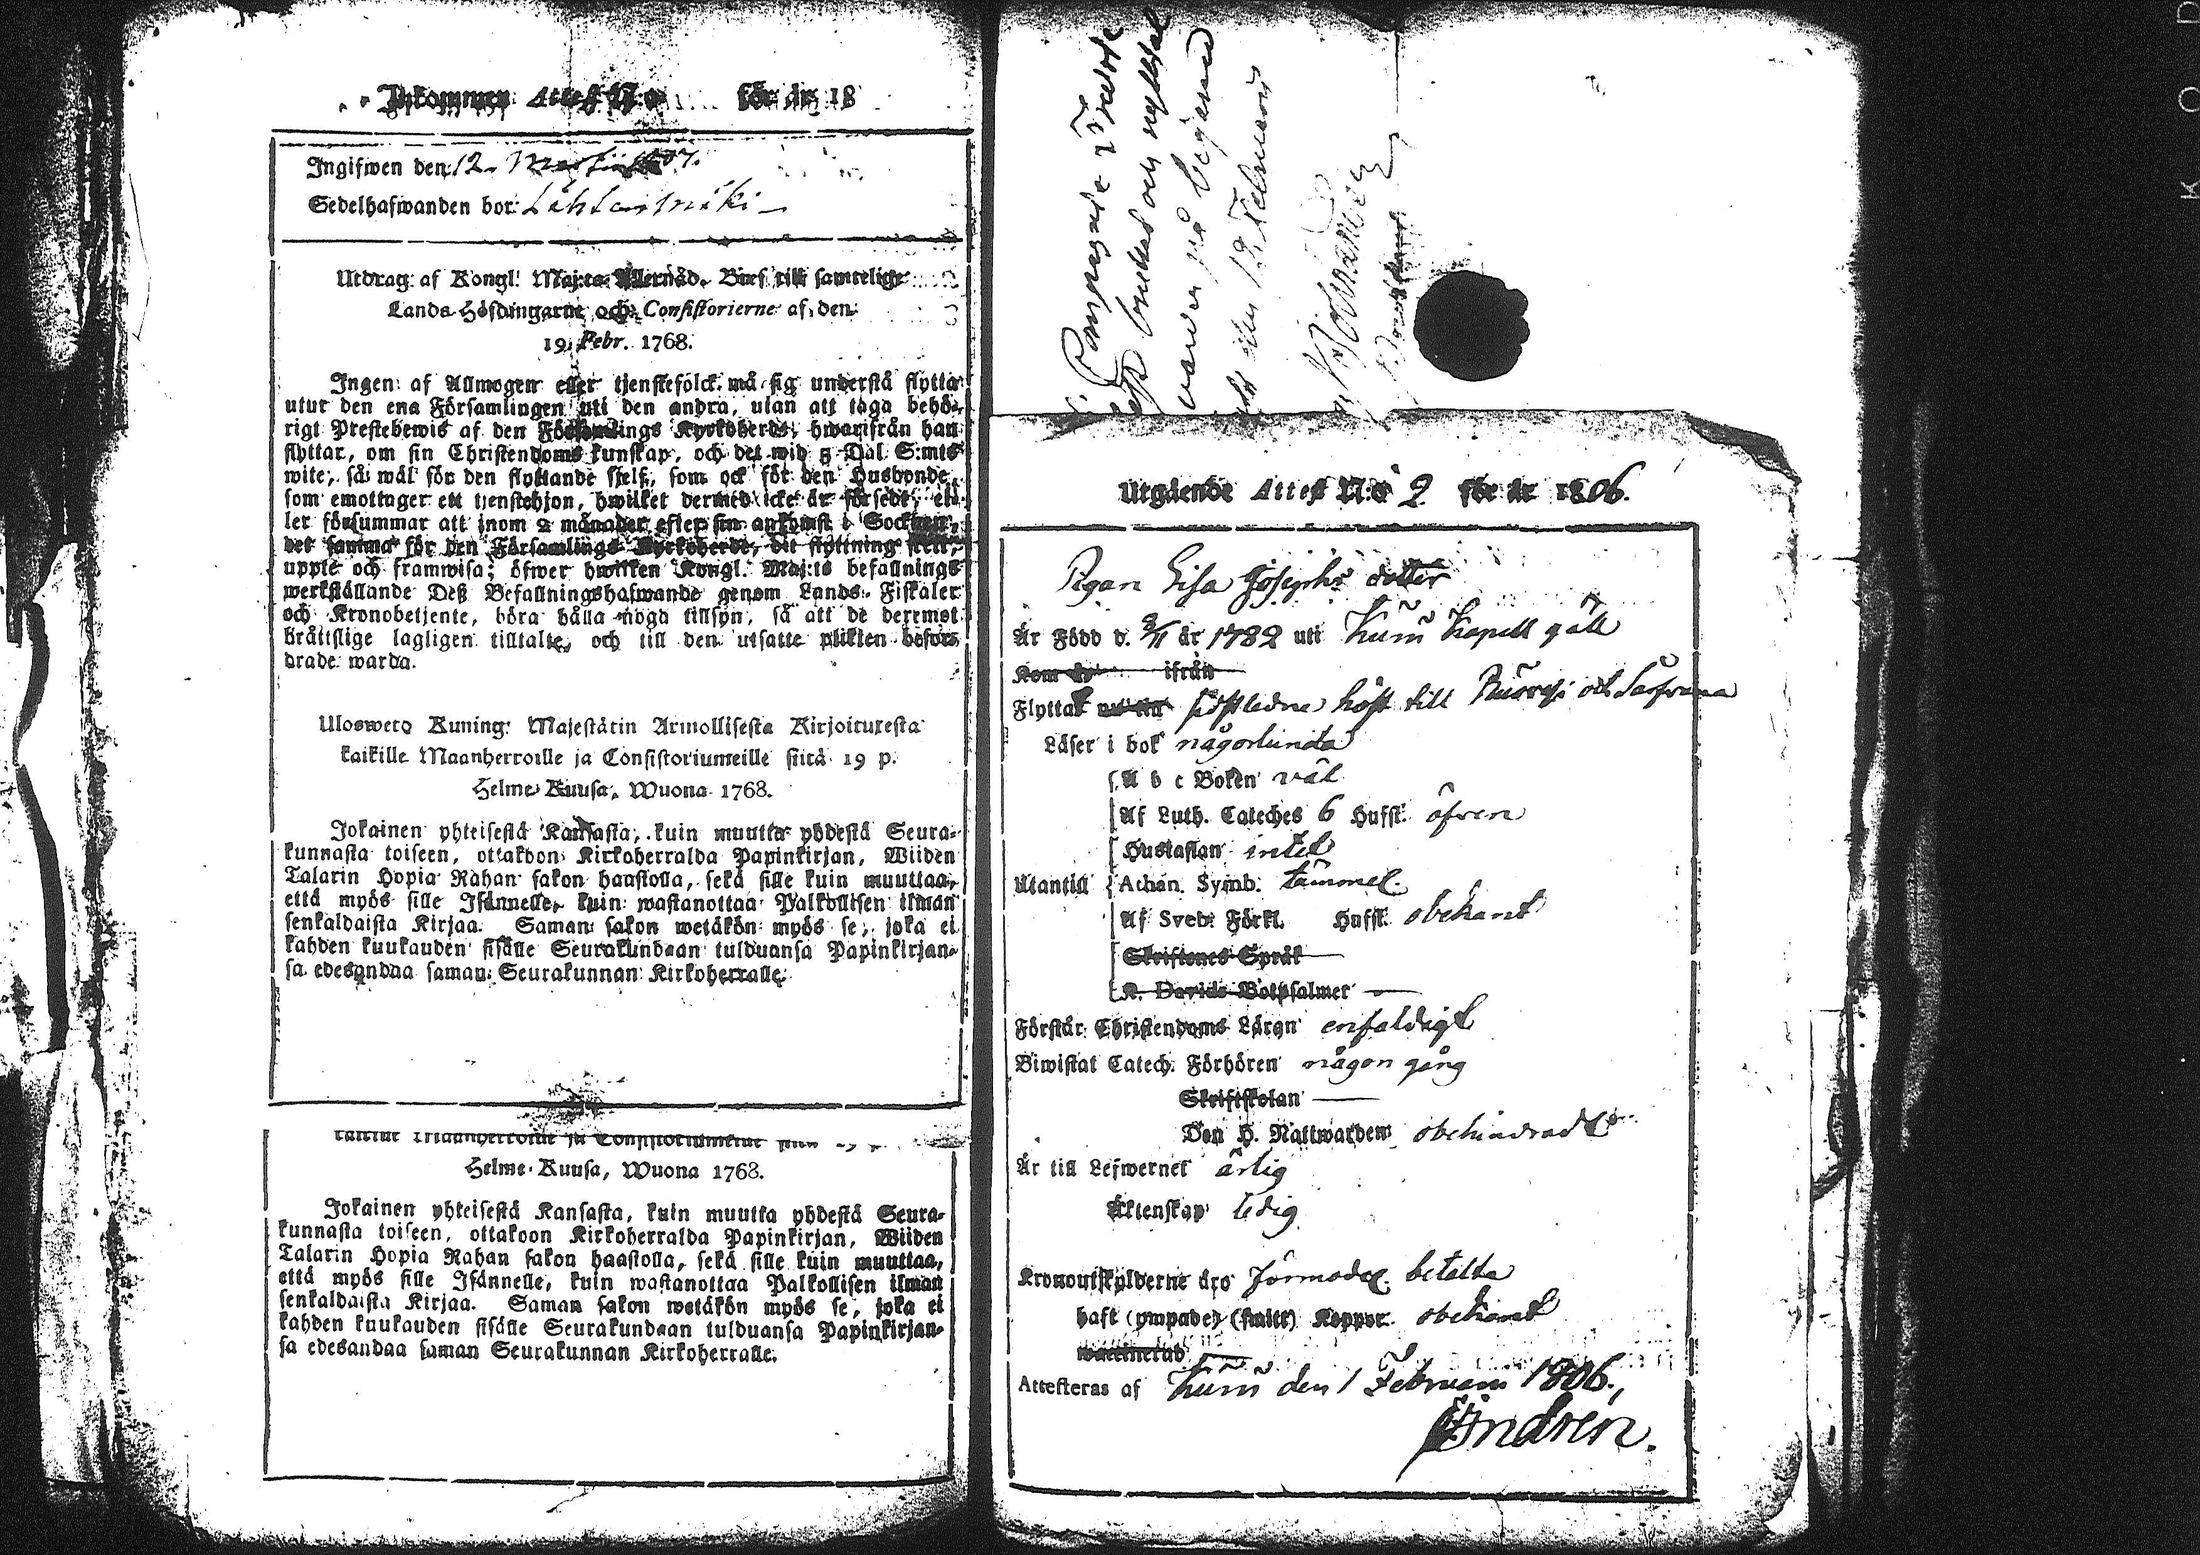 Inkommen Attest N:o för år 18
Ingifwen den 12 Martii 1807.
Sedelhafwanden bor:
Utdrag af Kongl. Maj:ts Allernåd. Bref till samtelige
Lands-Höfdingarne och Consistorierne af den
19 Febr. 1768.
Ingen af Allmogen eller tjenstefölck må sig understå flytta
utur den ena Församlingen uti den andra, utan att taga behö-
rigt Prestebewis af den Församlings Kyrkoherde, hwarifrån han
flyttar, om sin Christendoms kunskap, och det wid 5 Dal. S:mts
wite, så wäl för den flyttande sjelf, som ock för den Husbonde,
som emottager ett tjenstehjon, hwilket dermed icke är försedt, el-
ler försummar att inom 2 månader efter sin ankomst i Socknen,
det samma för den Församlings Kyrkoherde, dit flyttning skett,
uppte och framwisa; öfwer hwilken Kongl. Maj:ts befallnings
werkställande Deß Befallningshafwande genom Lands-Fiskaler
och Kronobetjente, böra hålla noga tillsyn, så att de deremot
bråttslige lagligen tilltalte, och till den utsatte plikten befor-
drade warda.
Ulosweto Kuning. Majestätin Armollisesta Kirjoituxesta
kaikille Maanherroille ja Consistoriumeille siitä 19 p.
Helme-Kuusa, Wuona 1768.
Jokainen yhteisestä Kansasta, kuin muutta yhdestä Seura-
kunnasta toiseen, ottakoon Kirkoherralda Papinkirjan, Wiiden
Talarin Hopia Rahan sakon haastolla, sekä sille kuin muuttaa,
että myös sille Isännelle, kuin wastanottaa Palkollisen ilman
senkaldaista Kirjaa. Saman sakon wetäkön myös se, joka ei
kahden kuukauden sisälle Seurakundaan tulduansa Papinkirjan-
sa edesandaa saman Seurakunnan Kirkoherralle.
kaikille Maanherroille ja Consistoriumeille siitä 19 p.
Helme-Kuusa, Wuona 1768.
Jokainen yhteisestä Kansasta, kuin muutta yhdestä Seura-
kunnasta toiseen, ottakoon Kirkoherralda Papinkirjan, Wiiden
Talarin Hopia Rahan sakon haastolla, sekä sille kuin muuttaa,
että myös sille Isännelle, kuin wastanottaa Palkollisen ilman
senkaldaista Kirjaa. Saman sakon wetäkön myös se, joka ei
kahden kuukauden sisälle Seurakundaan tulduansa Papinkirjan-
sa edesandaa saman Seurakunnan Kirkoherralle.
på begäran
den 12 Februarii
Utgående Attest N:o 2 för år 1806.
Pigan Lisa Josephs dotter
Är Född d. 3/11 år 1782 uti Kumo Kapell gäll
Kom år ifrån
Flyttat sistledne höst till och
Läser i bok någorlunda
A b c Boken väl
Af Luth. Cateches 6 Hufst. öfven
Hustaflan intet
Utantill Athan. Symb. tämmel.
Af Sveb. Förkl. Hufst. obekant
Skriftenes Språk
K. Davids Botpsalmer
Förstår Christendoms Läran enfaldigt
Biwistat Catech. Förhören någon gång
Skriftskolan
Den H. Nattwarden obehindradt
Är till Lefwernet ärlig
Äktenskap ledig
Kronoutskylderne äro förmodel. betalta
haft (ympade) (smitt) Koppor obekant
waccinerad
Attesteras af Kumo den 1 Februarii 1806.
Indrén.
KOD